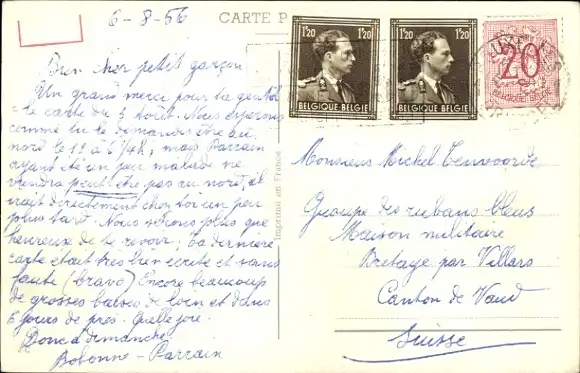 6-8-56
CARTE P
Bien cher petit garçon
Un grand merci pour ta gentille
carte du 3 août. Nous espérons
comme tu le demandes être au
nord le 12 à 6/4h, mais Parrain
ayant été un peu malade ne
viendra peut-être pas au nord, il
irait directement chez toi un peu
plus tard. Nous serons plus que
heureux de te revoir; ta dernière
carte était très bien écrite et sans
faute (bravo) Encore beaucoup
de grosses baises de loin et dans
6 jours de près. Quelle joie.
Donc à dimanche
Bobonne - Parrain
Imprimé en France
1F20
BELGIQUE BELGIE
1F20
BELGIQUE BELGIE
20
Monsieur Michel Tenvoorde
Groupe des rubans bleus
Maison militaire
Bretaye par Villars
Canton de Vaud
Suisse